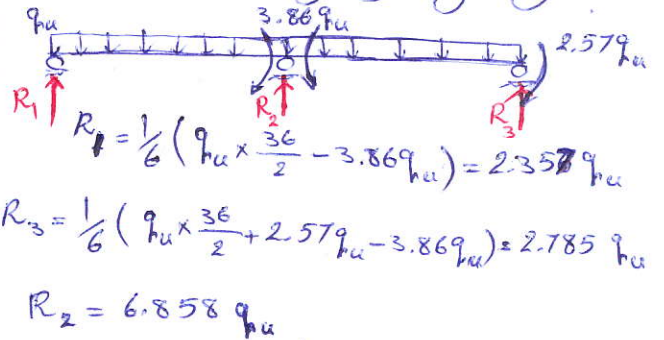 qu 3.86qu
2.57qu
R1 R2 R3
R1 = 1/6 ( qu × 36/2 - 3.86qu ) = 2.357 qu
R3 = 1/6 ( qu × 36/2 + 2.57qu - 3.86qu ) = 2.785 qu
R2 = 6.858 qu